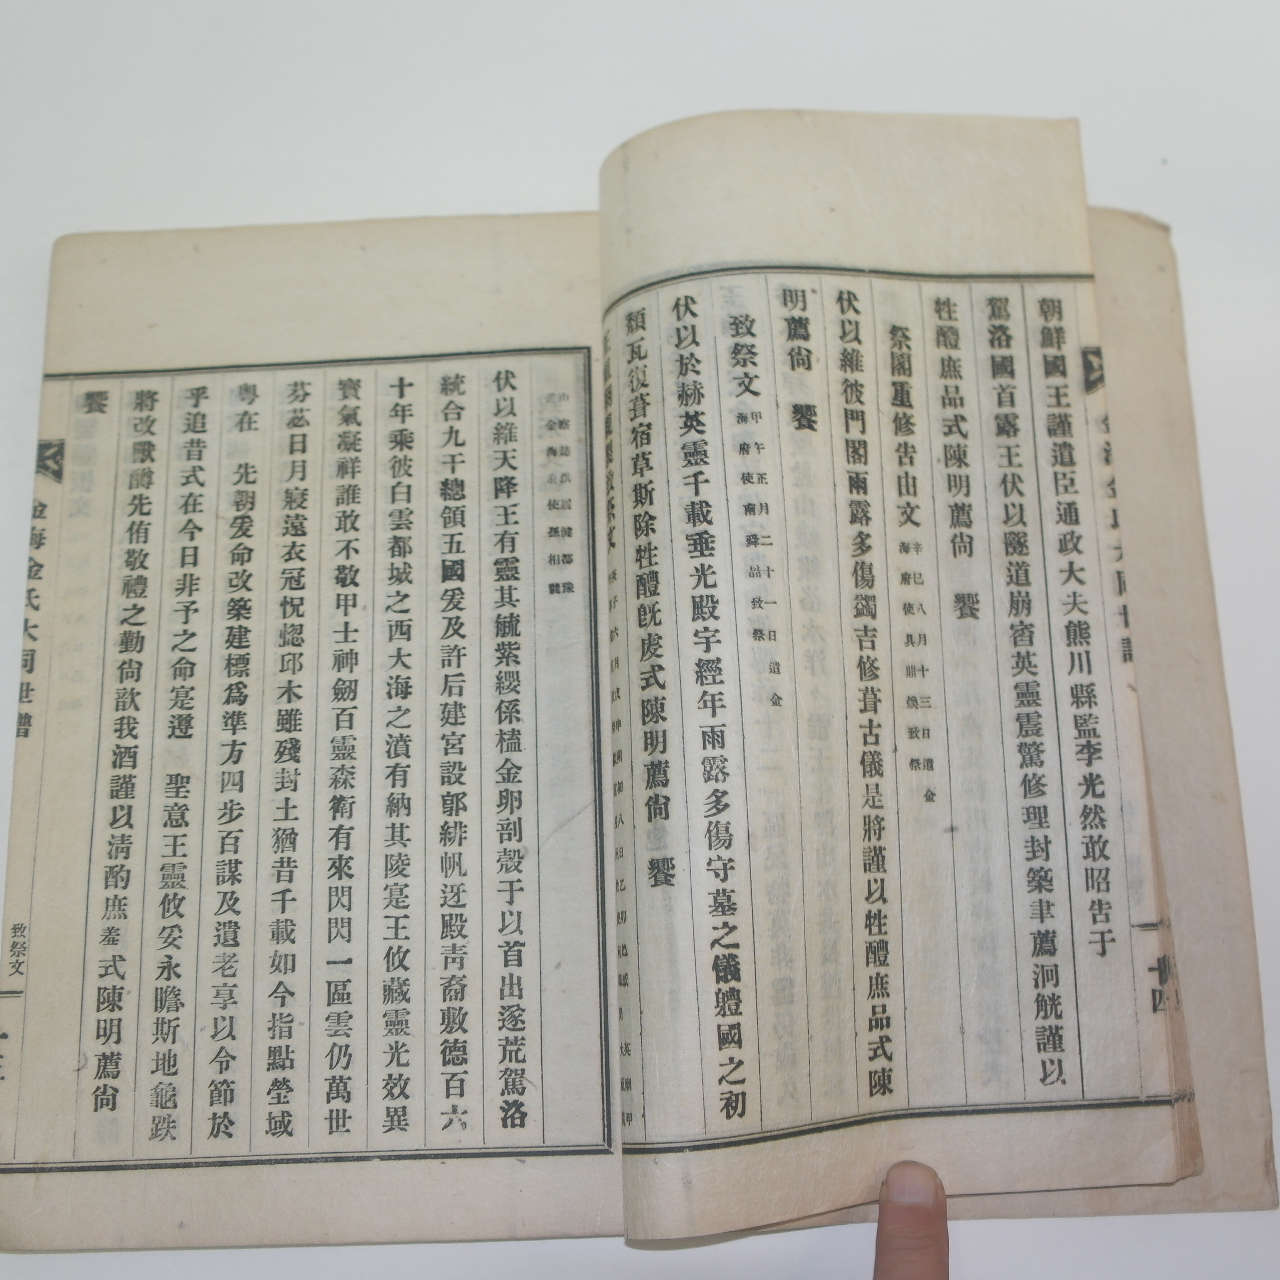 朝鮮國王謹遣臣通政大夫熊川縣監李光然敢昭告于
駕洛國首露王伏以隧道崩窞英靈震驚修理封築聿薦泂觥謹以
牲醴庶品式陳明薦尙　饗
祭閣重修告由文
辛巳八月十三日遣金
海府使具鼎煥致祭
伏以維彼門閣雨露多傷蠲吉修葺古儀是將謹以牲醴庶品式陳
明薦尙　饗
致祭文
甲午正月二十一日遣金
海府使南舜喆致祭
伏以於赫英靈千載垂光殿宇經年雨露多傷守墓之儀軆國之初
頹瓦復葺宿草斯除牲醴旣虔式陳明薦尙　饗
使孫相
伏以維天降王有靈其毓紫纓係榼金卵剖殼于以首出遂荒駕洛
統合九干總領五國爰及許后建宮設郭緋帆迓殿靑裔敷德百六
十年乘彼白雲都城之西大海之濆有納其陵寔王攸藏靈光效異
寶氣凝祥誰敢不敬甲士神劒百靈森衛有來閃閃一區雲仍萬世
芬苾日月寢遠衣冠怳惚邱木雖殘封土猶昔千載如今指點塋域
粤在　先朝爰命改築建標爲準方四步百謀及遺老享以令節於
乎追昔式在今日非予之命寔遵　聖意王靈攸妥永瞻斯地龜趺
將改獸罇先侑敬禮之勤尙歆我酒謹以淸酌庶羞式陳明薦尙
饗
金海金氏大同世譜
致祭文